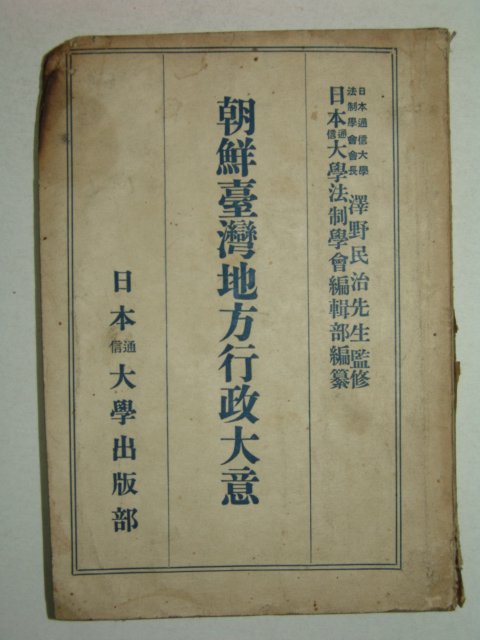 日本通信大學
法制學會會長
澤野民治先生監修
日本通信大學法制學會編輯部編纂
朝鮮臺灣地方行政大意
日本通信大學出版部